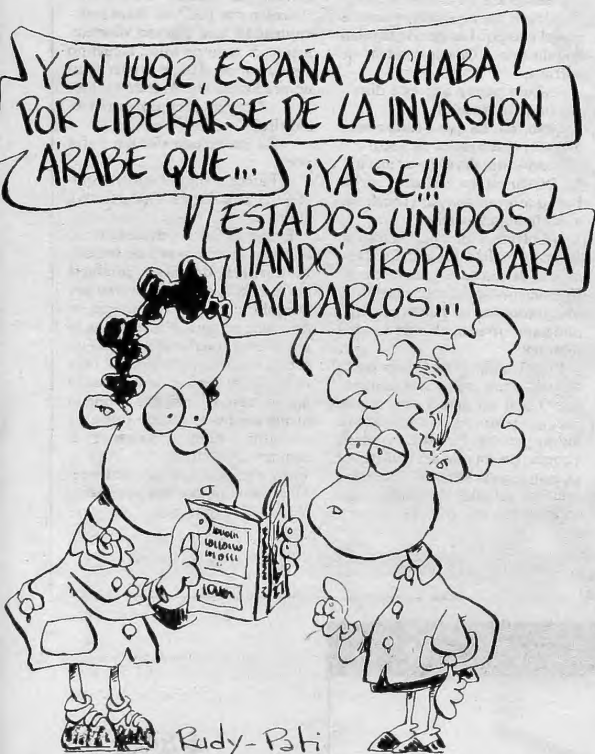 Y EN 1492, ESPAÑA LUCHABA
POR LIBERARSE DE LA INVASION
ÁRABE QUE...
¡YA SE!!! Y
ESTADOS UNIDOS
MANDÓ TROPAS PARA
AYUDARLOS...
Rudy-Pati